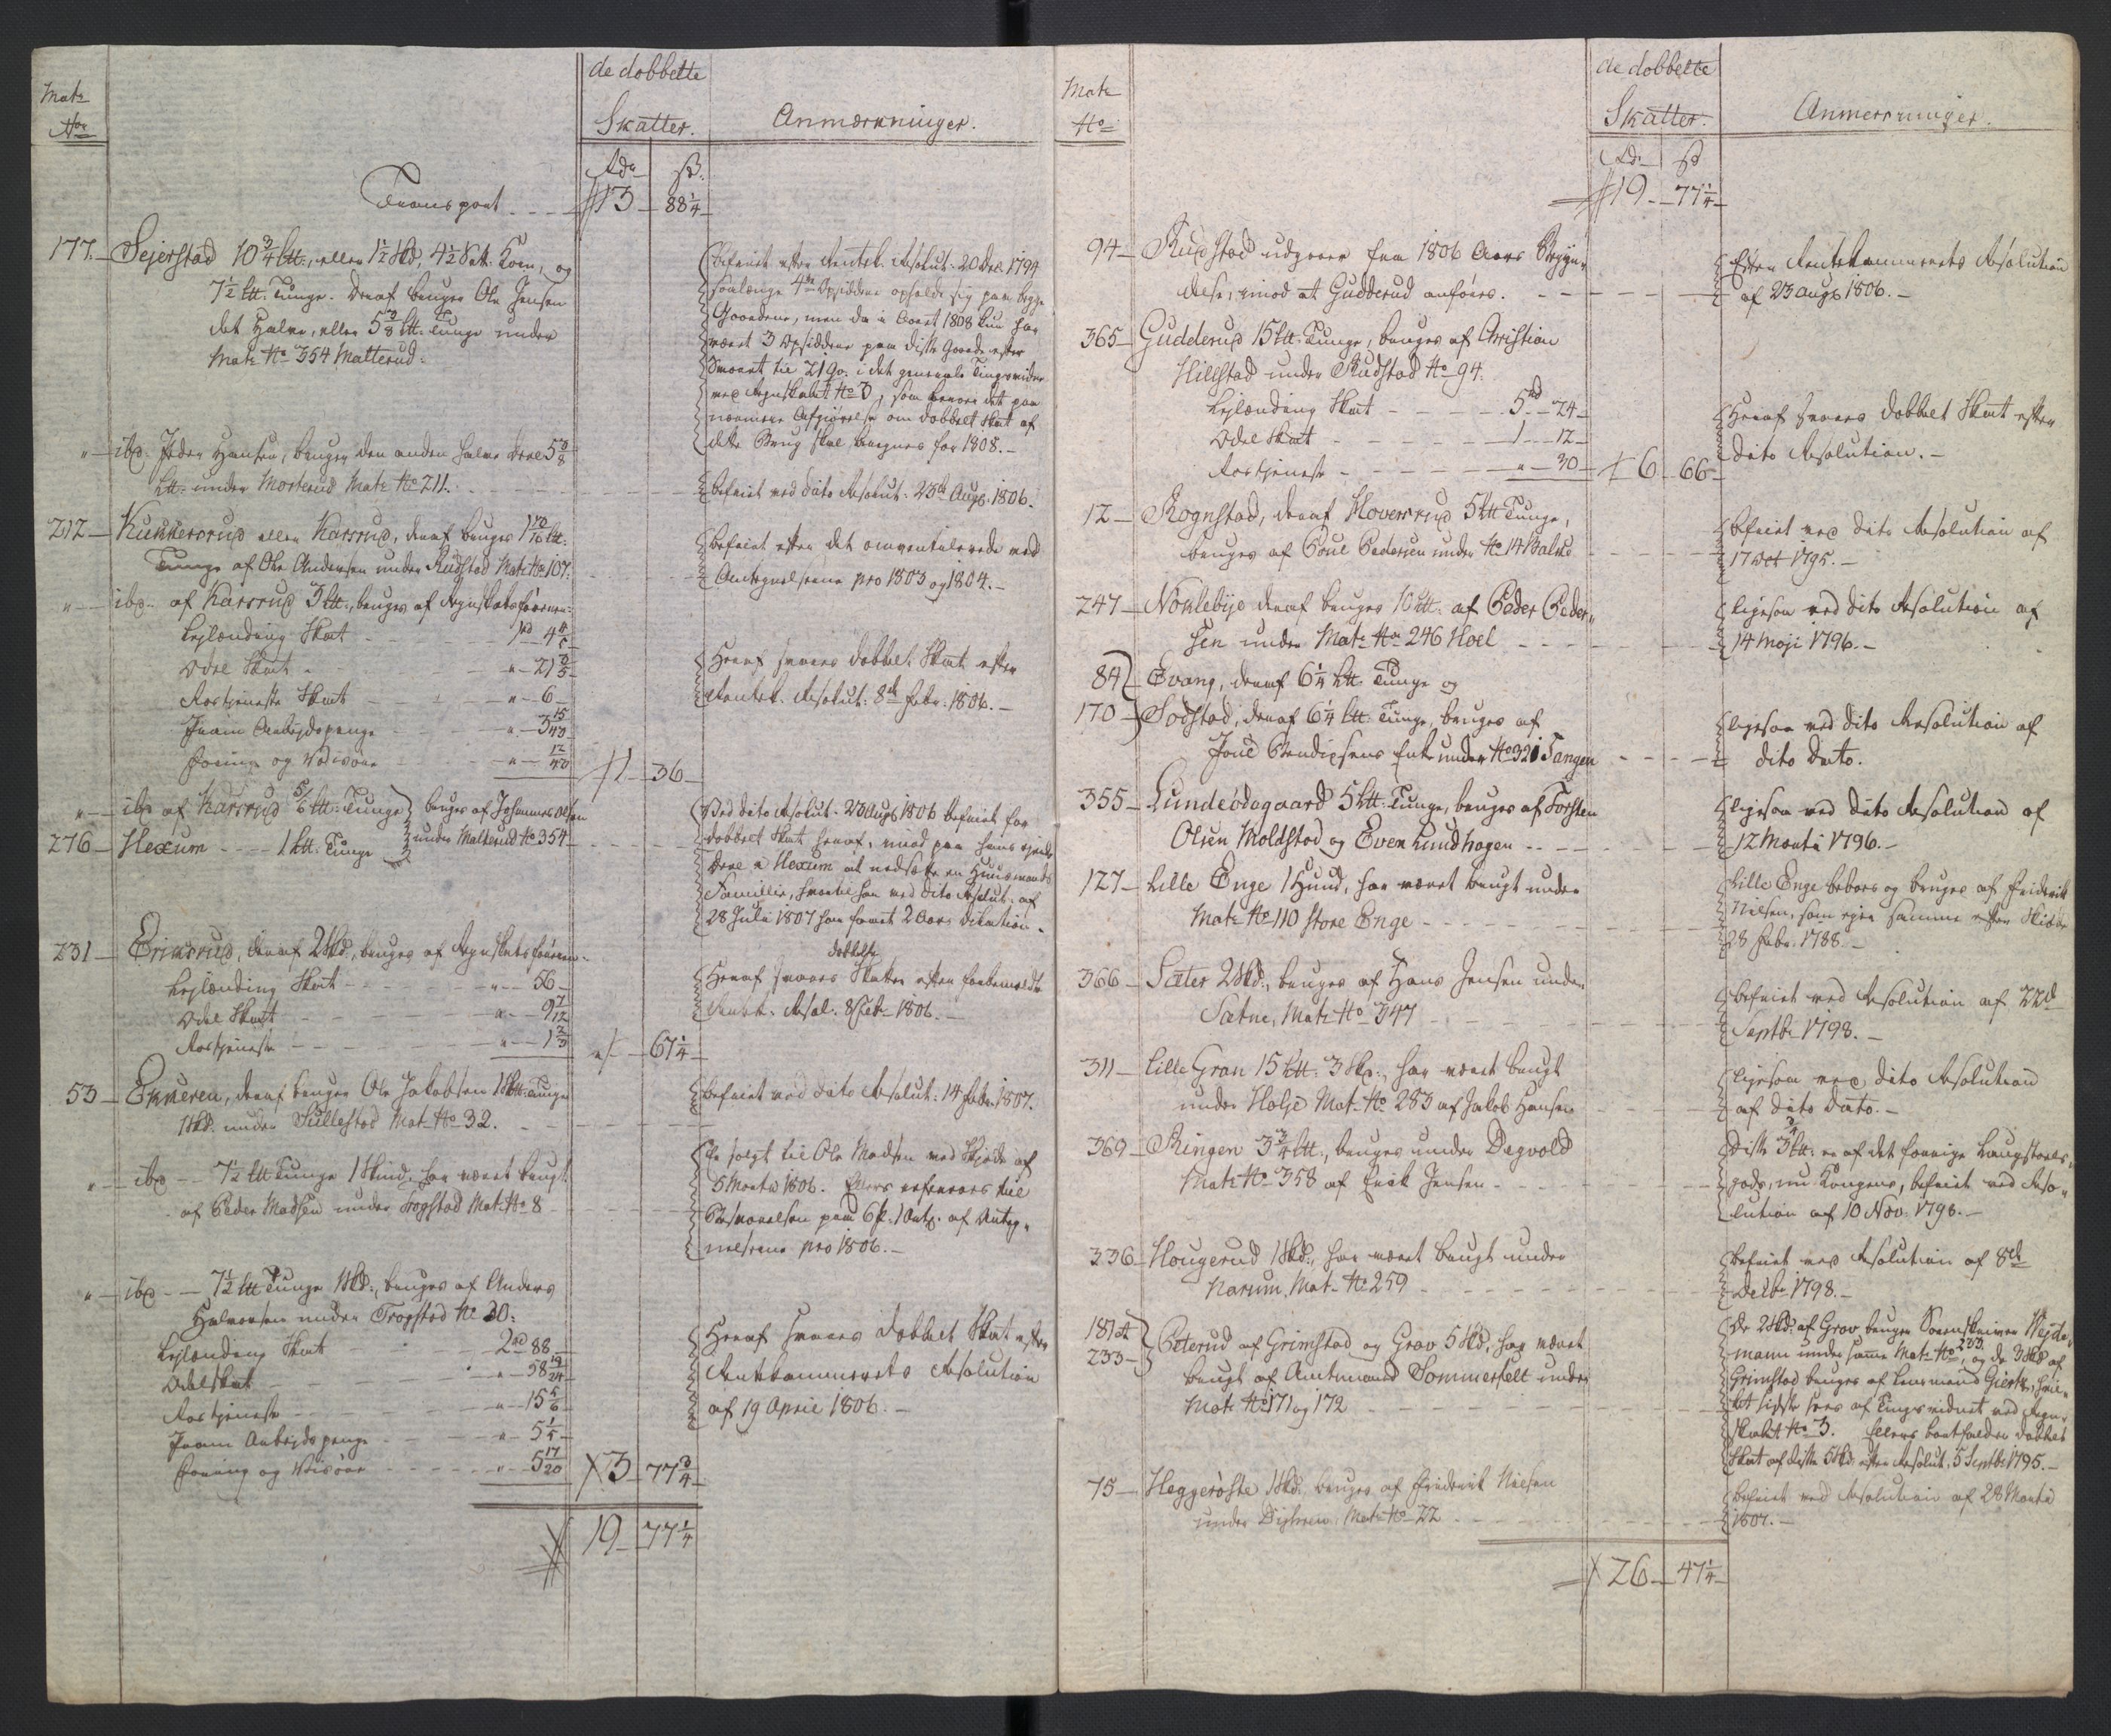 de dobbelte
Matr
No
Skatter.
Anmærkninger.
Rdr
ß.
Transport
13
88 1/4
177. Sejerstad 10 3/4 Ltt., eller 1 1/2 Skd, 4 1/2 Sett. Korn, og
7 1/2 Ltt. Tunge. Deraf bruger Ole Jensen
det Halve, eller 5 3/8 Ltt. Tunge under
Matr No 354 Malterud.
Befriet efter Rentek. Resolut. 20 Dec 1794
saalænge 4de Opsiddere opholde sig paa begge
Gaardene, men da i Aaret 1808 kun har
været 3 Opsiddere paa disse Gaarde efter
Svaret til 21 Qv. i det generale Tingsvidne
ved Regnskabet No 3, som beroer det paa
nærmere Afgiørelse om dobbelt Skat af
dette Brug skal beregnes for 1808.
" ibd. Peder Hansen, bruger den anden halve Deel 5 3/8
Ltt. under Mosterud Matr No 211.
befriet ved dito Resolut. 23de Aug. 1806.
212 Kukkersrud eller Karsrud, deraf bruges 1
Tunge af Ole Andersen under Rudstad Matr No 107.
befriet efter det ommentalerede ved
Antegnelserne pro 1803 og 1804.
" ibd. af Karsrud 3 Ltt., bruges af Regnskabsføreren:
Leilænding Skat 1 rd 4 4/5
Odel Skat " 21 3/5
Rostjeneste Skat " 6
Fraum Arbejdspenge " 3 15/40
Foring og Vidisøre " 12/40
1
36
Heraf svares dobbelt Skat efter
Rentek. Resolut. 8de Febr. 1806.
" ibd af Karsrud 5/6 Ltt. Tunge bruges af Johannes Olsen
276 Hexum 1 Ltt. Tunge under Malterud No 354
Ved dito Resolut. 23 Aug 1806 befriet for
dobbelt Skat heraf, imod paa hans ejende
Deel i Hexum at nedsætte en Huusmands
Famillie, hvortil han ved dito Resolut. af
28 Julii 1807 har faaet 2 Aars Dilation.
231 Eriksrud, deraf 2 Skd., bruges af Regnskabsføreren.
Leilænding Skat " 56
Odel Skat " 9 7/12
Rostjeneste " 1 2/3
" 67 1/4
dobbelte
Heraf svares Skatter efter forbemeldte
Rentek. Resol. 8 Feb. 1806.
53 Ekkeren, deraf bruger Ole Jakobsen 1 Skt. Tunge
1 Skd. under Sullestad Mat. No 32.
befriet ved dito Resolut. 14 Febr. 1807.
" ibd 7 1/2 Ltt Tunge 1 Skind. har været brugt
af Peder Madsen under Trogstad Mat. No 8
Er solgt til Ole Madsen ved Skjøde af
5 Martii 1806. Ellers refereres til
Besvarelsen paa 6 P. 1 Antg. af Anteg-
nelserne pro 1806.
" ibd 7 1/2 Ltt Tunge 1 Skd., bruges af Anders
Halvorsen under Trogstad No 30.
Leilænding Skat 2 rd 88
Odelskat " 58 19/24
Rostjeneste " 15 5/6
Fraum Arbejdspenge " 5 1/5
Foring og Visøre " 5 17/20
3
77 3/4
Heraf svares dobbelt Skat efter
Rentekammerets Resolution
af 19 April 1806.
19
77 1/4
de dobbelte
Matr
No
Skatter.
Anmerkninger.
Rdr
ß
19
77 1/4
94 Rudstad udgaaer fra 1806 Aars Begyn-
delse, imod at Gudderud anføres.
Efter Rentekammerets Resolution
af 23 Aug. 1806.
365 Gudderud 15 Ltt. Tunge, bruges af Christian
Hillestad under Rudstad No 94.
Leilænding Skat 5 rd 24
Odel Skat 1 12
Rostjeneste " 30
6
66
Heraf svares dobbelt Skat efter
dito Resolution.
12 Rognstad, deraf Hoversrud 5 Ltt Tunge,
bruges af Poul Pedersen under No 14 Balke
befriet ved dito Resolution af
17 Oct 1795.
247 Noklebye deraf bruges 10 Ltt. af Peder Peder-
sen under Matr No 246 Hoel
ligesaa ved dito Resolution af
14 Maji 1796.
84 Evang, deraf 6 1/4 Ltt. Tunge og
170 Sodstad, deraf 6 1/4 Ltt. Tunge, bruges af
Joul Bendixsens Enke under No 321 Tangen
ligesaa ved dito Resolution af
dito Dato.
355 Lundeødegaard 5 Ltt. Tunge, bruges af Torsten
Olsen Moldstad og Even Lundhagen
ligesaa ved dito Resolution af
12 Martii 1796.
127 Lille Enge 1 Hund, har været brugt under
Matr No 110 store Enge
Lille Enge beboes og bruges af Friderik
Nielsen, som ejer samme efter Skiøde
28 Febr. 1788.
366 Sæter 2 Skd., bruges af Hans Jensen under
Sætne, Matr No 347
befriet ved Resolution af 22d
Septbr 1798.
311 Lille Gran 15 Ltt. 3 Skd., har været brugt
under Holje Mat. No 283 af Jakob Hansen
ligesaa ved dito Resolution
af dito Dato.
369 Ringen 3 3/4 Ltt., bruges under Degvold
Matr No 358 af Erik Jensen
Disse 3 3/4 Ltt. er af det forrige Laugstoels-
gods, nu Kongens, befriet ved Reso-
lution af 10 Nov. 1798.
336 Hougerud 1 Skd., har været brugt under
Narum, Mat. No 259
befriet ved Resolution af 8de
Decbr 1798.
181 et
233 Peterud af Grimstad og Grav 5 Skd, har været
brugt af Amtmand Sommerfelt under
Matr No 171 og 172
De 2 Skd. af Grav bruger Sorenskriver Wejde-
mann under samme Mat. No 233, og de 3 Skd af
Grimstad bruges af Lensmand Giertz, hvil-
ket sidste sees af Tingsvidnet ved Regn-
skabet No 3. Ellers bortfalder dobbelt
Skat af disse 5 Skd. efter Resolut. 5 Septbr 1795.
75 Heggerøste 1 Skd, bruges af Friderik Nielsen
under Dyhren, Matr No 22
befriet ved Resolution af 28 Martii
1807.
26
47 1/4